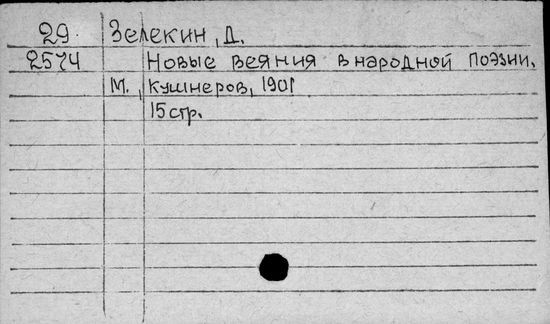 29. Зелекин, Д.
2574 Новые веяния в народной поэзии.
М., Кушнеров, 1901
15 стр.